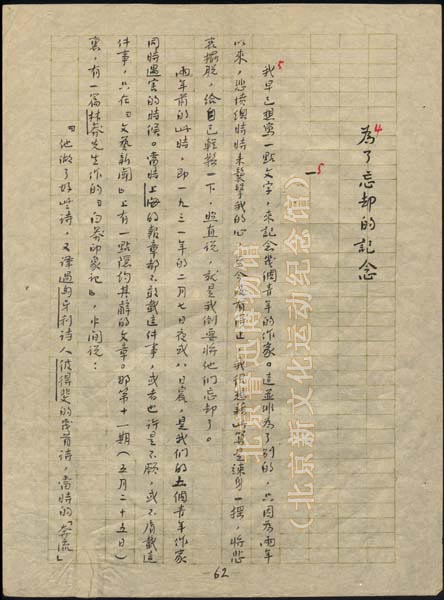 4
為了忘却的記念
5
一
5
我早已想寫一點文字，來記念幾個青年的作家。這並非為了別的，只因為兩年
以來，悲憤總時時來襲擊我的心，至今没有停止，我很想藉此算是竦身一摇，將悲
哀擺脱，給自己輕鬆一下，照直說，就是我倒要將他們忘却了。
兩年前的此時，即一九三一年的二月七日夜或八日晨，是我們的五個青年作家
同時遇害的時候。當時上海的報章都不敢載這件事，或者也許是不願，或不屑載這
件事，只在『文藝新聞』上有一點隱約其辭的文章。那第十一期（五月二十五日）
裏，有一篇林莽先生作的『白莽印象記』，中間說：
『他做了好些詩，又譯過匈牙利詩人彼得斐的幾首詩，當時的「奔流」
62
北京鲁迅博物馆
（北京新文化运动纪念馆）